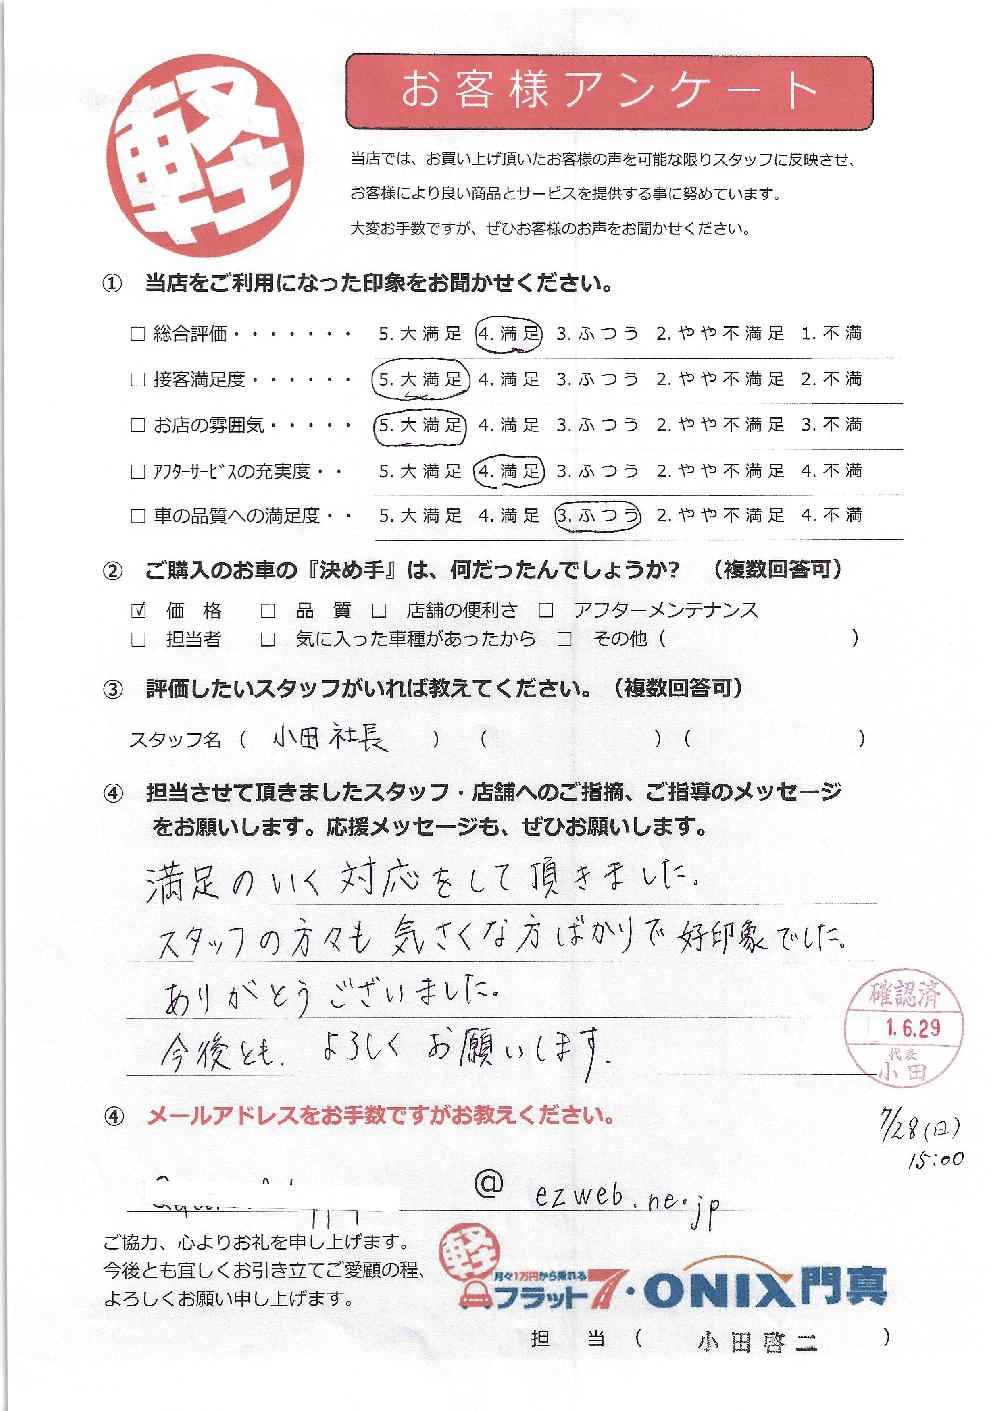 軽
お客様アンケート
当店では、お買い上げ頂いたお客様の声を可能な限りスタッフに反映させ、
お客様により良い商品とサービスを提供する事に努めています。
大変お手数ですが、ぜひお客様のお声をお聞かせください。
① 当店をご利用になった印象をお聞かせください。
□ 総合評価・・・・・・・ 5. 大満足 4. 満足 3. ふつう 2. やや不満足 1. 不満
□ 接客満足度・・・・・・ 5. 大満足 4. 満足 3. ふつう 2. やや不満足 2. 不満
□ お店の雰囲気・・・・・ 5. 大満足 4. 満足 3. ふつう 2. やや不満足 3. 不満
□ ｱﾌﾀｰｻｰﾋﾞｽの充実度・・ 5. 大満足 4. 満足 3. ふつう 2. やや不満足 4. 不満
□ 車の品質への満足度・・ 5. 大満足 4. 満足 3. ふつう 2. やや不満足 4. 不満
② ご購入のお車の『決め手』は、何だったんでしょうか? （複数回答可）
☑ 価格 □ 品質 □ 店舗の便利さ □ アフターメンテナンス
□ 担当者 □ 気に入った車種があったから □ その他（ ）
③ 評価したいスタッフがいれば教えてください。（複数回答可）
スタッフ名（ 小田 社長 ）（ ）（ ）
④ 担当させて頂きましたスタッフ・店舗へのご指摘、ご指導のメッセージ
をお願いします。応援メッセージも、ぜひお願いします。
満足のいく対応をして頂きました。
スタッフの方々も気さくな方ばかりで好印象でした。
ありがとうございました。
今後とも、よろしくお願いします。
確認済
1.6.29
代表
小田
④ メールアドレスをお手数ですがお教えください。
7/28(日)
15:00
@ ezweb.ne.jp
ご協力、心よりお礼を申し上げます。
今後とも宜しくお引き立てご愛顧の程、
よろしくお願い申し上げます。
軽
月々1万円から乗れる
フラット7・ONIX門真
担当（ 小田啓二 ）